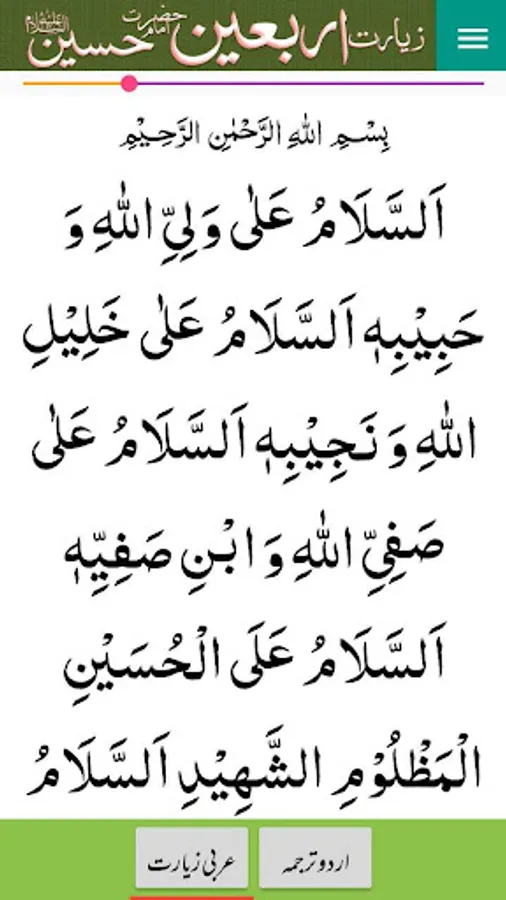 زیارت اربعین حضرت امام حسین علیہ السلام
بِسْمِ اللهِ الرَّحْمٰنِ الرَّحِیْمِ
اَلسَّلَامُ عَلٰی وَلِیِّ اللهِ وَ
حَبِیْبِهٖ اَلسَّلَامُ عَلٰی خَلِیْلِ
اللهِ وَ نَجِیْبِهٖ اَلسَّلَامُ عَلٰی
صَفِیِّ اللهِ وَ ابْنِ صَفِیِّهٖ
اَلسَّلَامُ عَلَی الْحُسَیْنِ
الْمَظْلُوْمِ الشَّهِیْدِ اَلسَّلَامُ
عربی زیارت
اردو ترجمہ